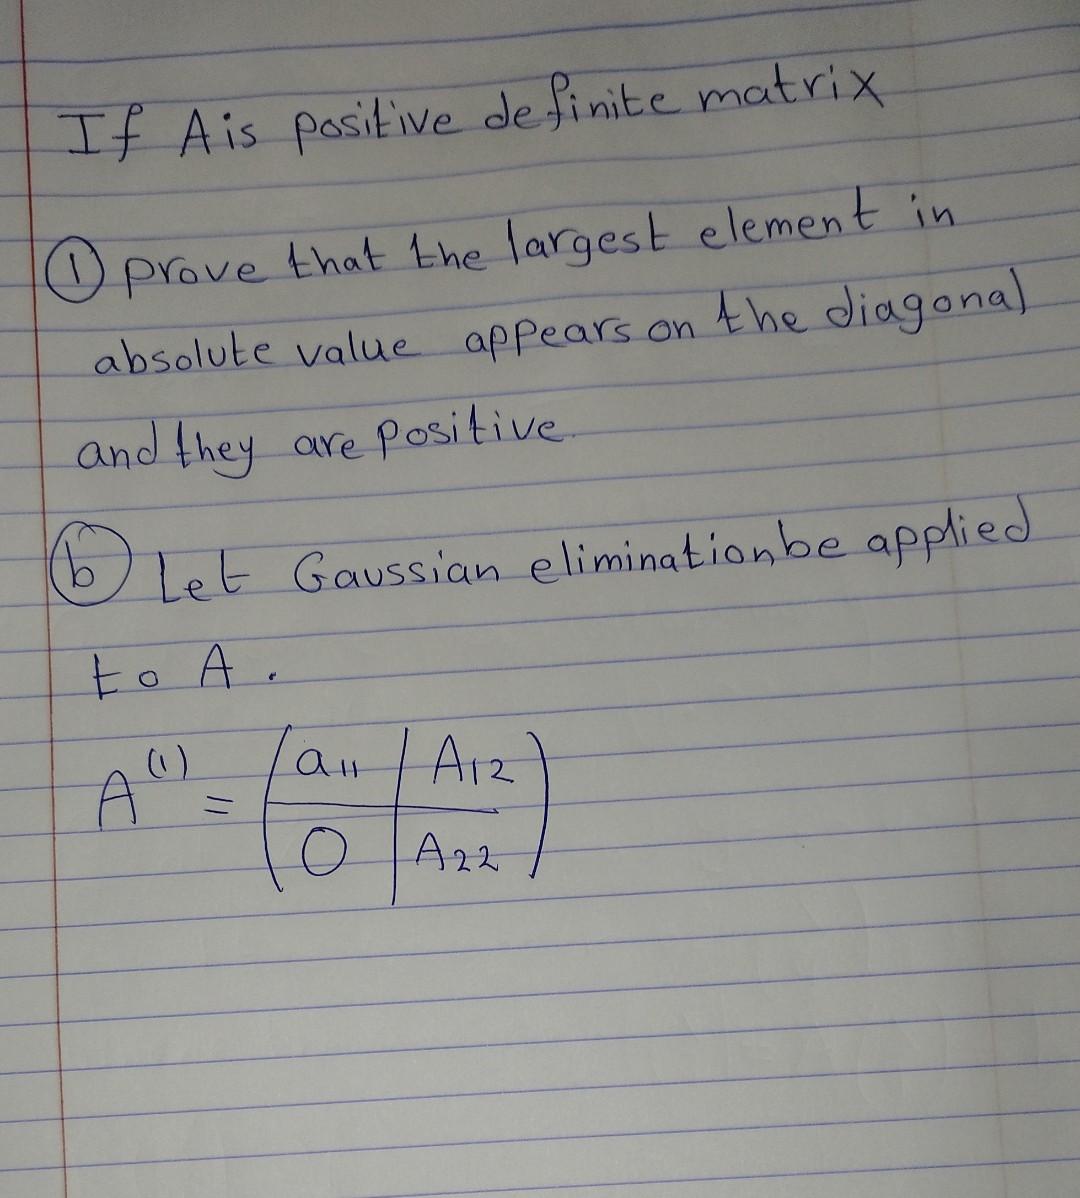 If A is positive definite matrix
① prove that the largest element in
absolute value appears on the diagonal
and they are positive.
ⓑ Let Gaussian elimination be applied
to A.
A⁽¹⁾ = (a₁₁ | A₁₂
0 | A₂₂)